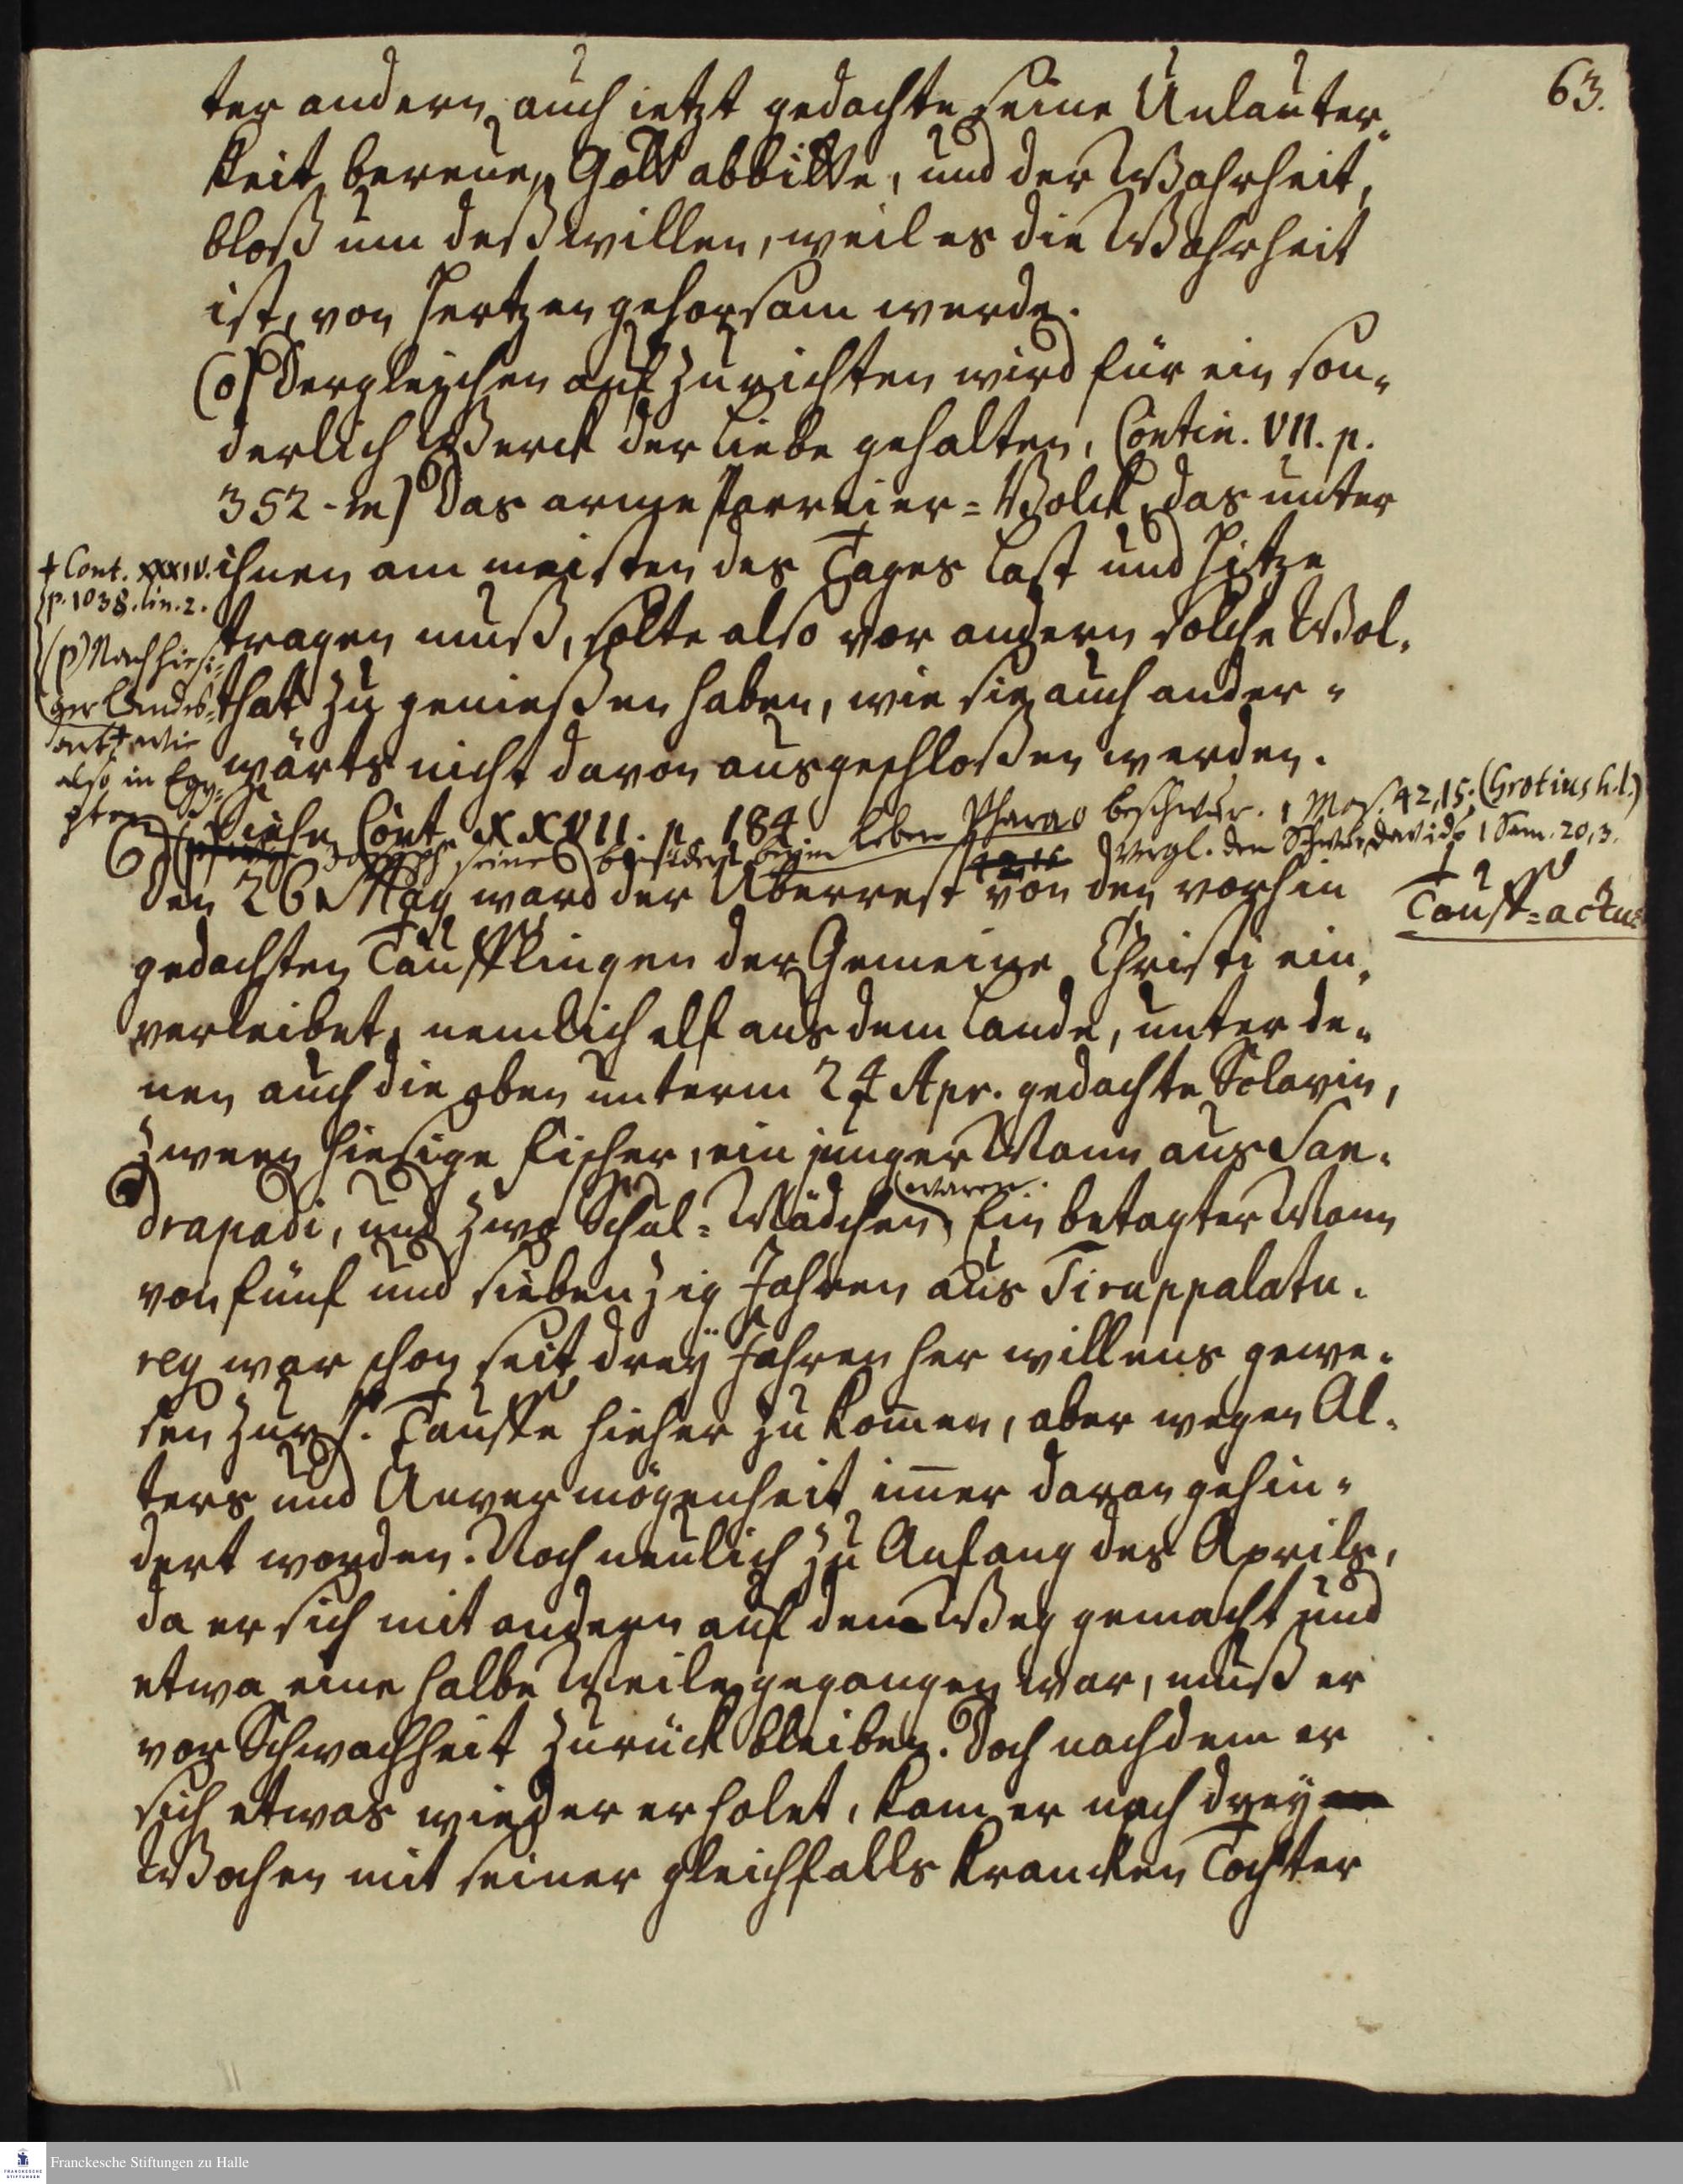 63.
ter andern auch ietzt gedachte seine Unlauter-
keit bereue, Gott abbitte, und der Wahrheit,
bloß um deß willen, weil es die Wahrheit
ist, von Hertzen gehorsam werde.
(o) Dergleichen aufzurichten wird für ein son-
derlich Werck der Liebe gehalten, Contin. VII. p.
352-m) Das arme Parreier-Volck, das unter
ihnen am meisten des Tages Last und Hitze
tragen muß, solte also vor andern solche Wol-
that zu genießen haben, wie sie auch ander-
wärts nicht davon ausgeschloßen werden.
Siehe Cont. XXVII. p. 184
† Cont. XXXIV.
p. 1038. lin. 2.
(p) Nach hiesi-
ger Landes-
art wie
also in Egy-
pten Joseph seine Brüder beym Leben Pharao beschwur. 1 Mos. 42,15. (Grotius h.l.)
Vergl. den Schwur Davids 1 Sam. 20,3.
Den 26n May ward der Überrest von den vorhin
Tauff-actus
gedachten Täufflingen der Gemeine Christi ein-
verleibet, nemlich elf aus dem Lande, unter de-
nen auch die oben unterm 24 Apr. gedachte Sclavin,
zween hiesige Fischer, ein junger Mann aus San-
drapadi, und zwo Schul-Mädchen waren. Ein betagter Mann
von fünf und siebenzig Jahren aus Tiruppalatu-
rey war schon seit drey Jahren her willens gewe-
sen zur h. Tauffe hieher zu kommen, aber wegen Al-
ters und Unvermögenheit immer daran gehin-
dert worden. Noch neulich zu Anfang des Aprils,
da er sich mit andern auf den Weg gemacht und
etwa eine halbe Meile gegangen war, muß er
vor Schwachheit zurück bleiben. Doch nachdem er
sich etwas wieder erholet, kam er nach drey
Wochen mit seiner gleichfalls krancken Tochter
Franckesche Stiftungen zu Halle